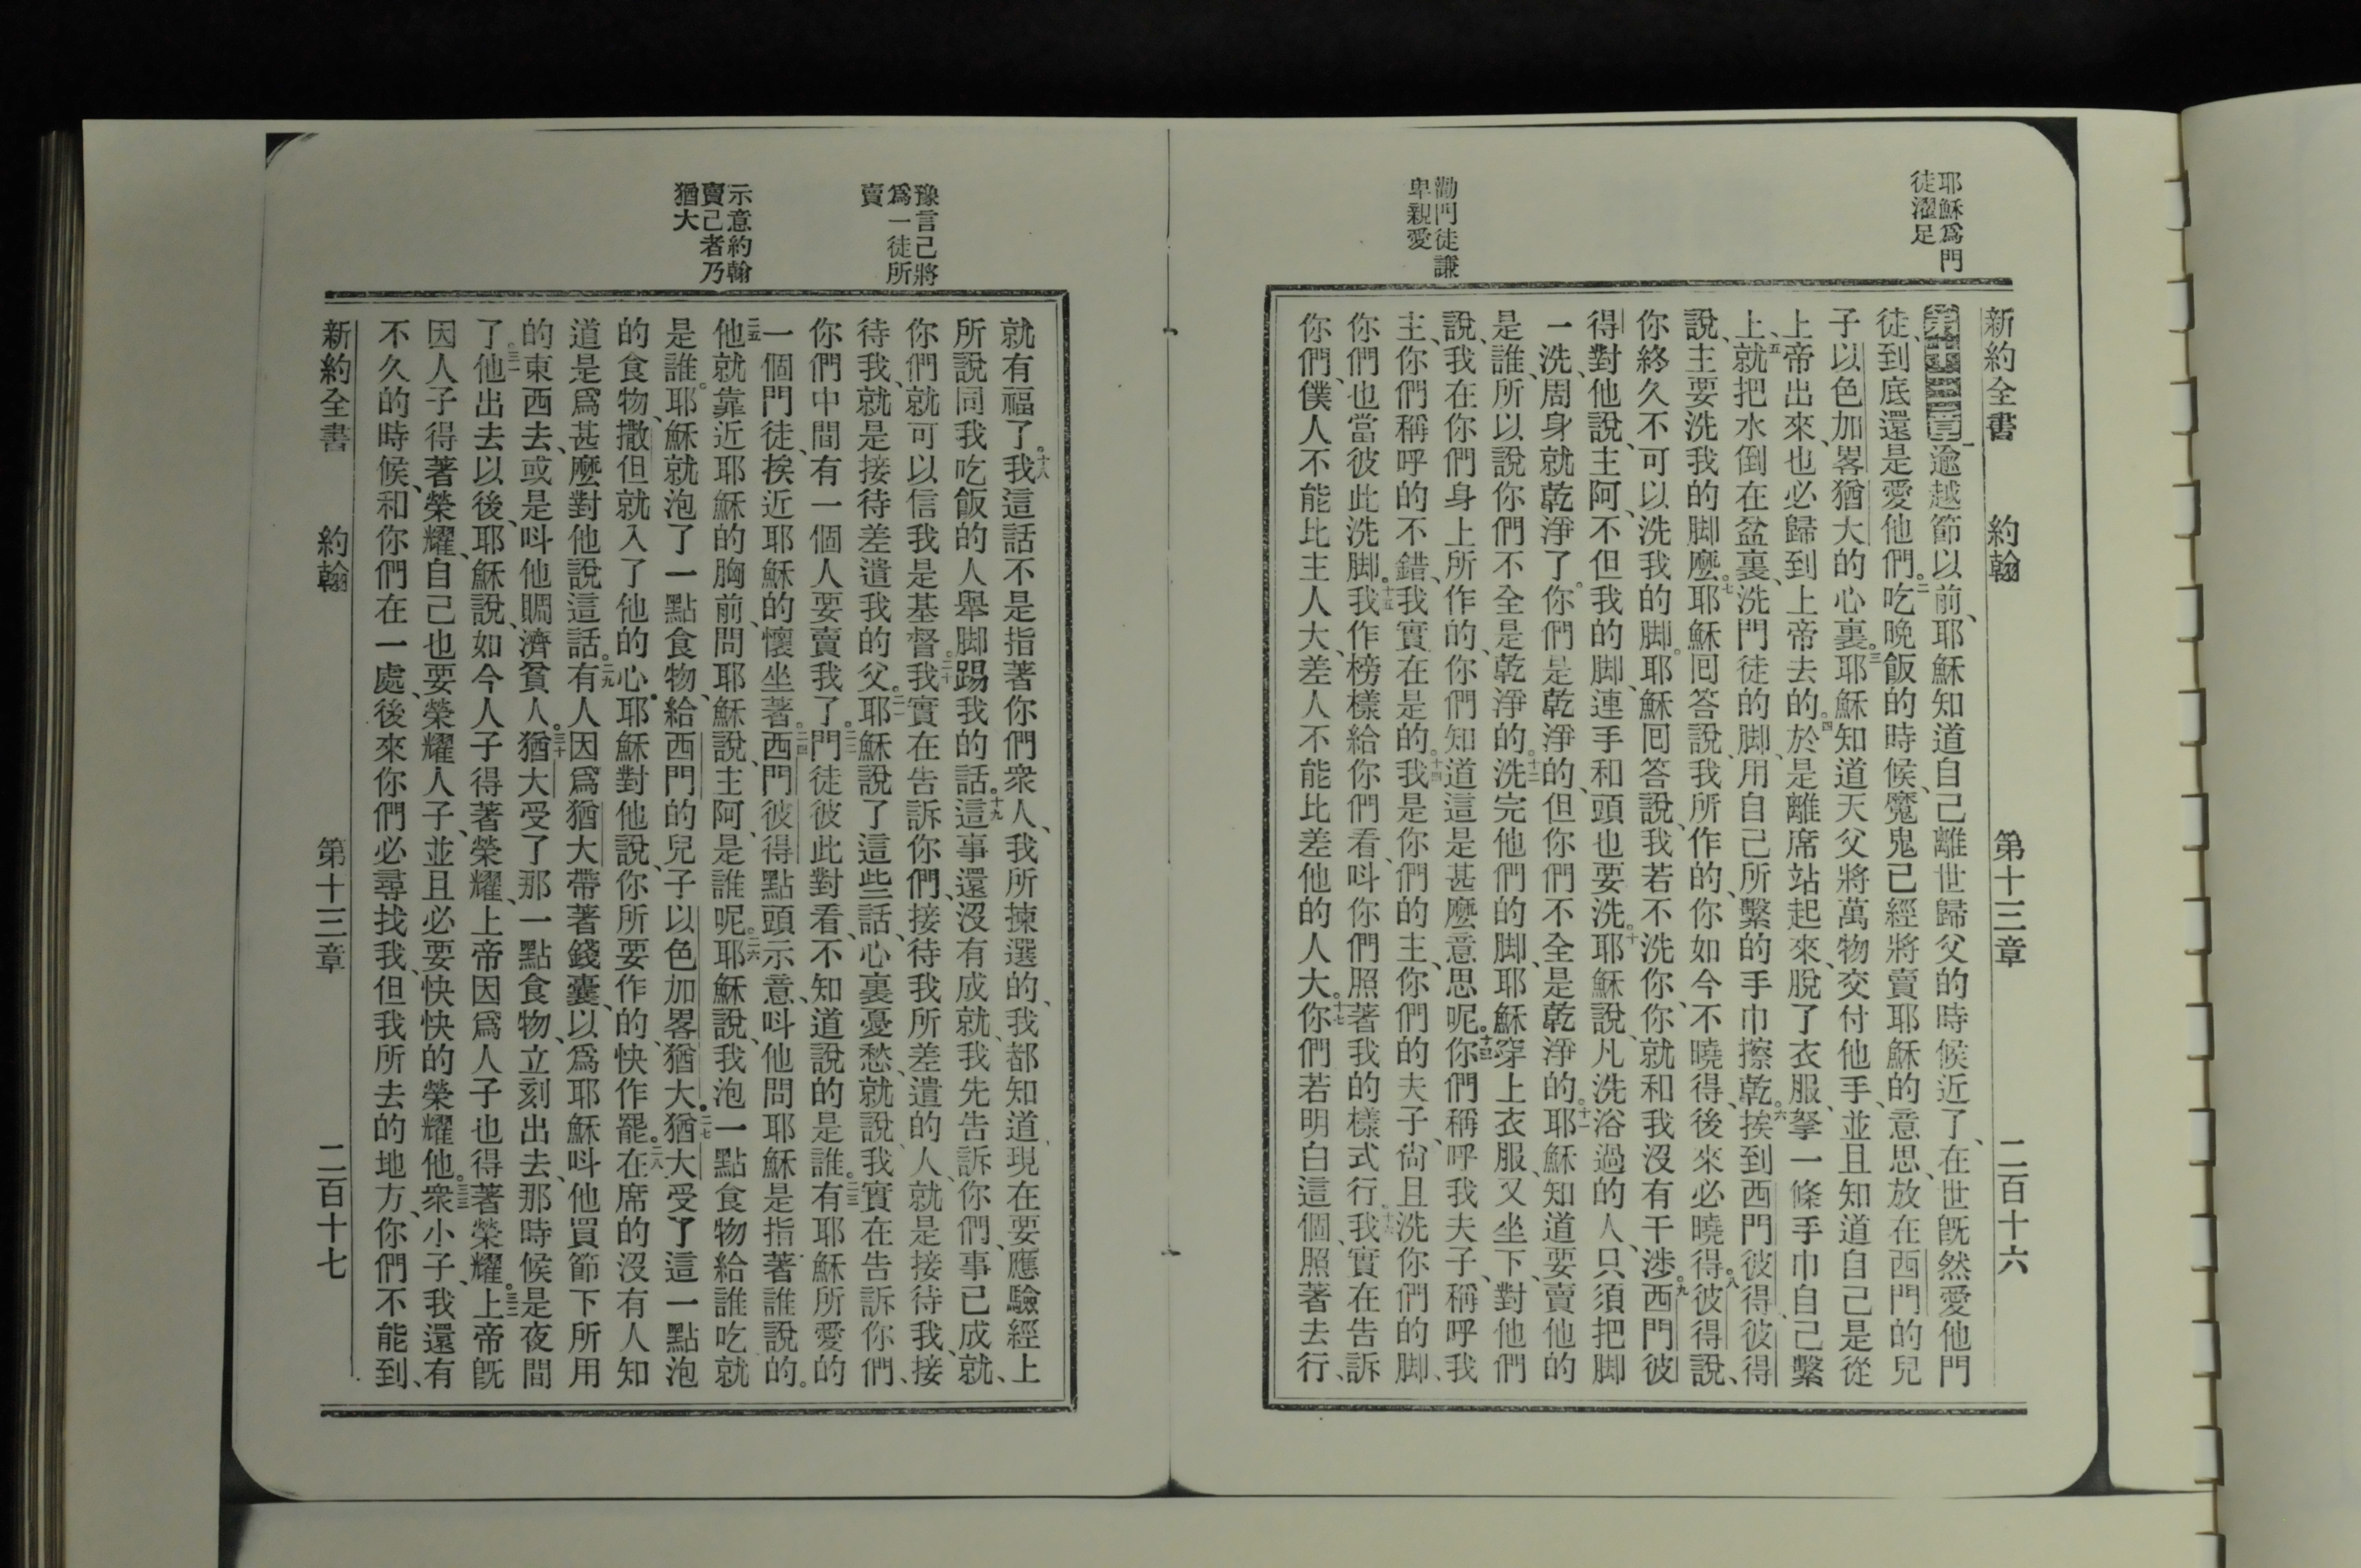 耶穌爲門
徒濯足
勸門徒謙
卑親愛
新約全書 約翰 第十三章 二百十六
第十三章一逾越節以前、耶穌知道自己離世歸父的時候近了、在世旣然愛他門
徒、到底還是愛他們。二吃晚飯的時候、魔鬼已經將賣耶穌的意思、放在西門的兒
子以色加畧猶大的心裏。三耶穌知道天父將萬物交付他手、並且知道自己是從
上帝出來、也必歸到上帝去的。四於是離席站起來、脫了衣服、拏一條手巾自己繫
上、五就把水倒在盆裏、洗門徒的脚、用自己所繫的手巾擦乾。六挨到西門彼得、彼得
說、主要洗我的脚麼。七耶穌囘答說、我所作的、你如今不曉得、後來必曉得。八彼得說、
你終久不可以洗我的脚。耶穌囘答說、我若不洗你、你就和我沒有干涉。九西門彼
得對他說、主阿、不但我的脚、連手和頭也要洗。十耶穌說、凡洗浴過的人、只須把脚
一洗、周身就乾淨了。你們是乾淨的、但你們不全是乾淨的。十一耶穌知道要賣他的
是誰、所以說你們不全是乾淨的。十二洗完他們的脚、耶穌穿上衣服、又坐下、對他們
說、我在你們身上所作的、你們知道這是甚麼意思呢。十三你們稱呼我夫子、稱呼我
主、你們稱呼的不錯、我實在是的。十四我是你們的主、你們的夫子、尙且洗你們的脚、
你們也當彼此洗脚。十五我作榜樣給你們看、呌你們照著我的樣式行。十六我實在告訴
你們、僕人不能比主人大、差人不能比差他的人大。十七你們若明白這個、照著去行、
豫言己將
爲一徒所
賣
示意約翰
賣己者乃
猶大
就有福了。十八我這話不是指著你們衆人、我所揀選的、我都知道、現在要應驗經上
所說同我吃飯的人舉脚踢我的話。十九這事還沒有成就、我先告訴你們、事已成就、
你們就可以信我是基督。二十我實在告訴你們、接待我所差遣的人、就是接待我、接
待我、就是接待差遣我的父。二一耶穌說了這些話、心裏憂愁、就說、我實在告訴你們、
你們中間有一個人要賣我了。二二門徒彼此對看、不知道說的是誰。二三有耶穌所愛的
一個門徒、挨近耶穌的懷坐著。二四西門彼得點頭示意、呌他問耶穌是指著誰說的。
二五他就靠近耶穌的胸前、問耶穌說、主阿、是誰呢。二六耶穌說、我泡一點食物給誰吃就
是誰。耶穌就泡了一點食物、給西門的兒子以色加畧猶大。二七猶大受了這一點泡
的食物、撒但就入了他的心。耶穌對他說、你所要作的、快作罷。二八在席的沒有人知
道是爲甚麼對他說這話。二九有人因爲猶大帶著錢囊、以爲耶穌呌他買節下所用
的東西去、或是呌他賙濟貧人。三十猶大受了那一點食物、立刻出去、那時候是夜間
了。三一他出去以後、耶穌說、如今人子得著榮耀、上帝因爲人子也得著榮耀。三二上帝旣
因人子得著榮耀、自己也要榮耀人子、並且必要快快的榮耀他。三三衆小子、我還有
不久的時候、和你們在一處、後來你們必尋找我、但我所去的地方、你們不能到、
新約全書 約翰 第十三章 二百十七